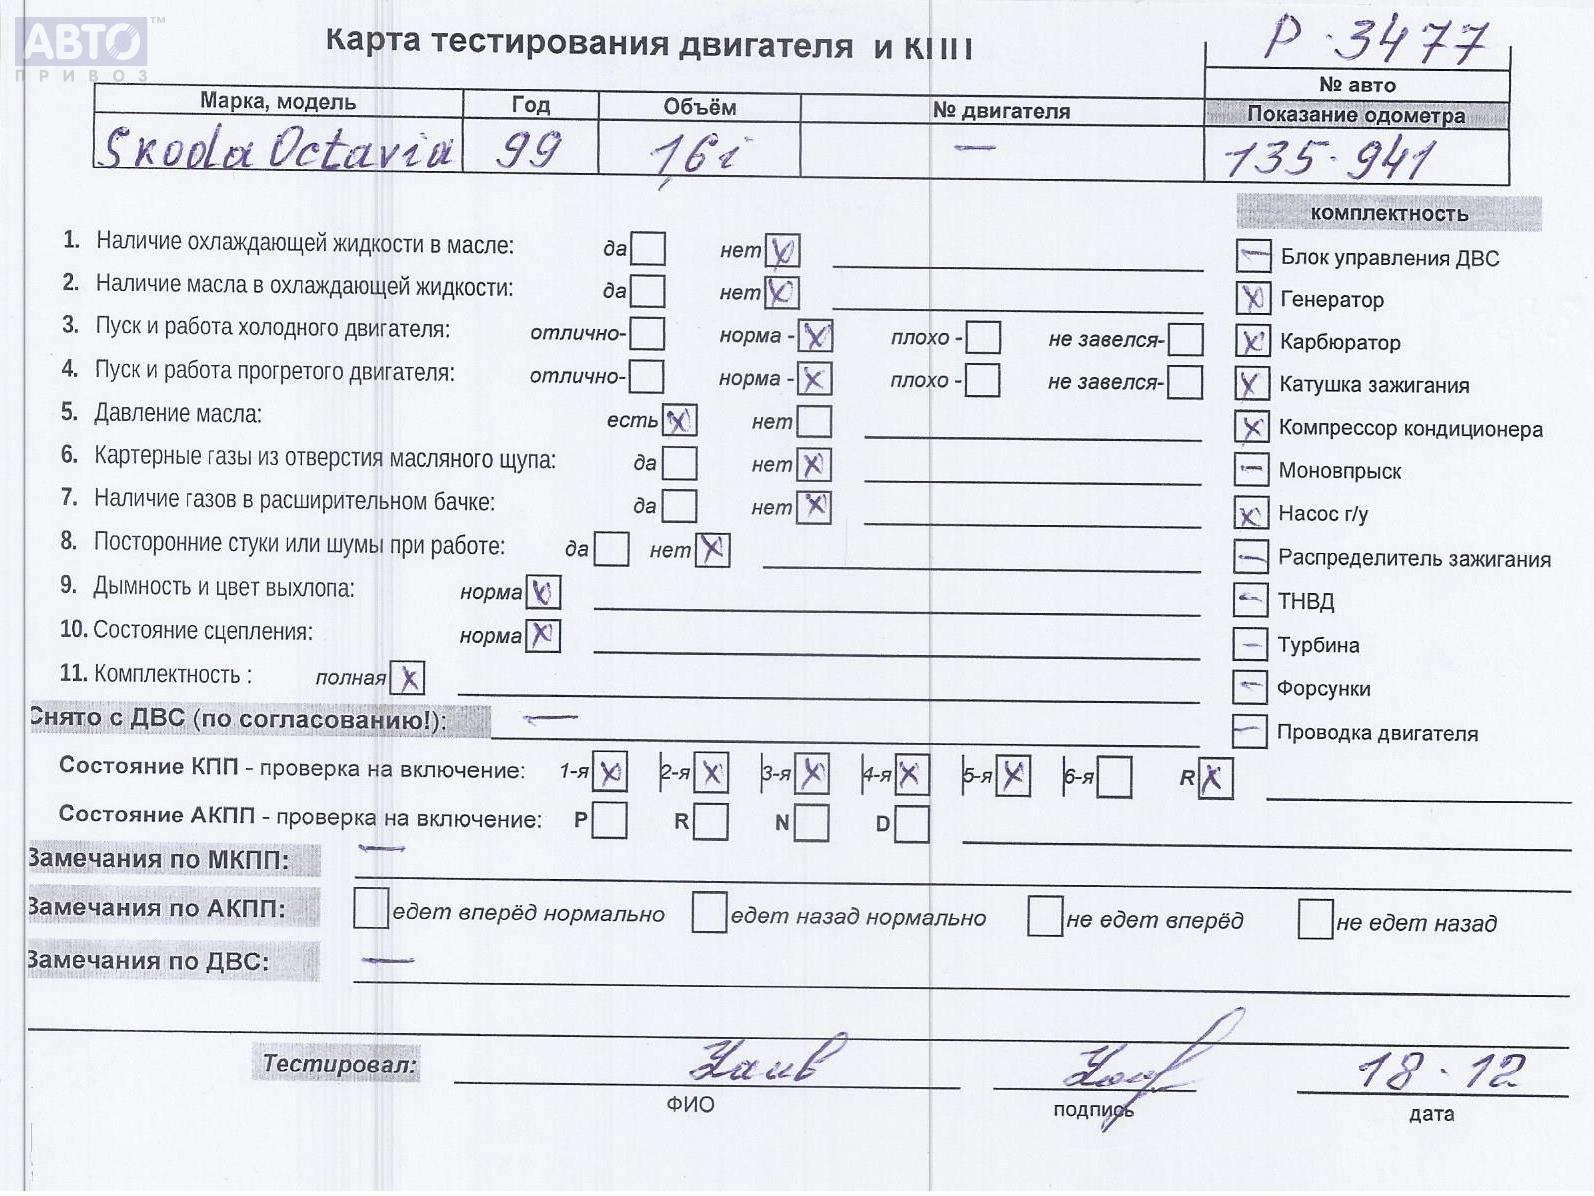 АВТО™
ПРИВОЗ
Карта тестирования двигателя и КПП
Р-3477
№ авто
Марка, модель Год Объём № двигателя Показание одометра
Skoda Octavia 99 1,6i — 135-941
комплектность
1. Наличие охлаждающей жидкости в масле: да нет X
2. Наличие масла в охлаждающей жидкости: да нет X
3. Пуск и работа холодного двигателя: отлично- норма - X плохо - не завелся-
4. Пуск и работа прогретого двигателя: отлично- норма - X плохо - не завелся-
5. Давление масла: есть X нет
6. Картерные газы из отверстия масляного щупа: да нет X
7. Наличие газов в расширительном бачке: да нет X
8. Посторонние стуки или шумы при работе: да нет X
9. Дымность и цвет выхлопа: норма X
10. Состояние сцепления: норма X
11. Комплектность : полная X
— Блок управления ДВС
X Генератор
X Карбюратор
X Катушка зажигания
X Компрессор кондиционера
— Моновпрыск
X Насос г/у
— Распределитель зажигания
— ТНВД
— Турбина
— Форсунки
— Проводка двигателя
Снято с ДВС (по согласованию!): —
Состояние КПП - проверка на включение: 1-я X 2-я X 3-я X 4-я X 5-я X 6-я R X
Состояние АКПП - проверка на включение: P R N D
Замечания по МКПП: —
Замечания по АКПП: едет вперёд нормально едет назад нормально не едет вперёд не едет назад
Замечания по ДВС: —
Тестировал: 18-12
ФИО подпись дата